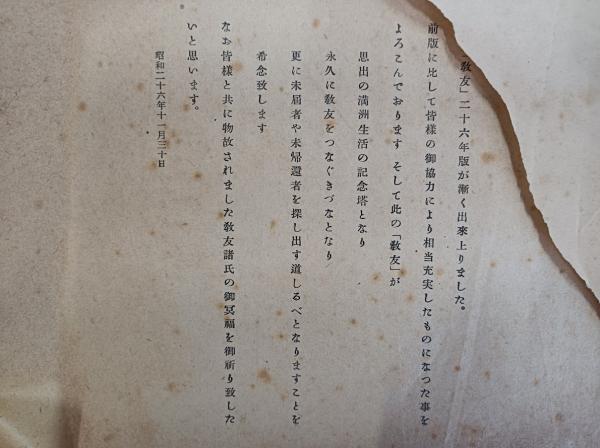 「敎友」二十六年版が漸く出來上りました。
前版に比して皆様の御協力により相当充実したものになつた事を
よろこんでおります そして此の「敎友」が
思出の満洲生活の記念塔となり
永久に敎友をつなぐきづなとなり
更に未届者や未帰還者を探し出す道しるべとなりますことを
希念致します
なお皆様と共に物故されました敎友諸氏の御冥福を御祈り致した
いと思います。
昭和二十六年十一月三十日